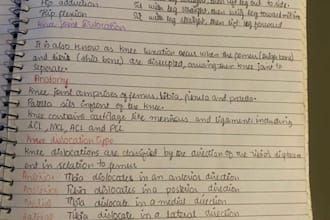 Hip adduction Sit with leg straight, then
Hip flexion Sit with leg straight, then lift leg forward
Knee Joint Dislocation
It is also known as knee luxation occur when the femur (thigh bone)
and tibia (shin bone) are disrupted, causing knee joint to
separate.
Anatomy
Knee joint comprises of femur, tibia, fibula and patella.
Patella sits infront of the knee.
Knee contains cartilage like meniscus and ligaments including
ACL, MCL, ACL and PCL
Knee dislocation type
Knee dislocations are classified by the direction of the
ent in relation to femur.
Anterior Tibia dislocates in an anterior direction
Posterior Tibia dislocates in a posterior direction
Medial Tibia dislocate in a medial direction
Lateral Tibia dislocate in a lateral direction